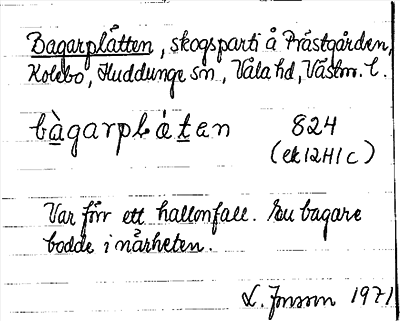 Bagarplätten, skogsparti å Prästgården,
Kolebo, Huddunge sn, Våla hd, Västm. l.
bàgarpläten 824
(ek 12H1c)
Var förr ett hallonfall. En bagare
bodde i närheten.
L. Jonsson 1971